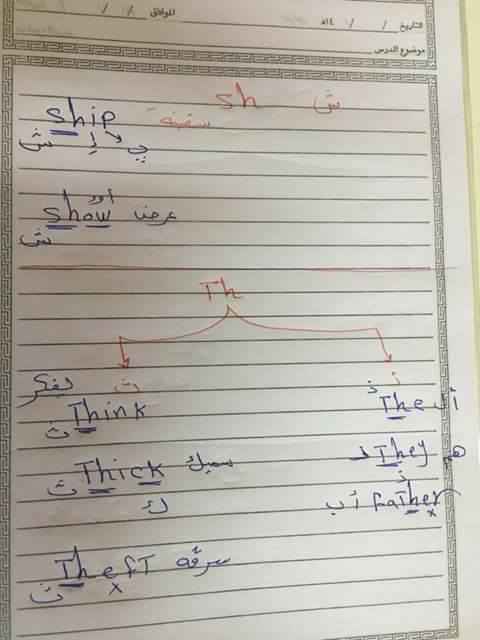 التاريخ / / ١٤هـ الموافق / /
موضوع الدرس
sh ش
ship سفينة
ش إ پ
أوو
show عرض
ش
Th
ث ذ
يفكر
Think ث
ذ The ال
Thick سميك ث
ك
ذ They هم
ذ
Father أب
Theft سرقة
ث x